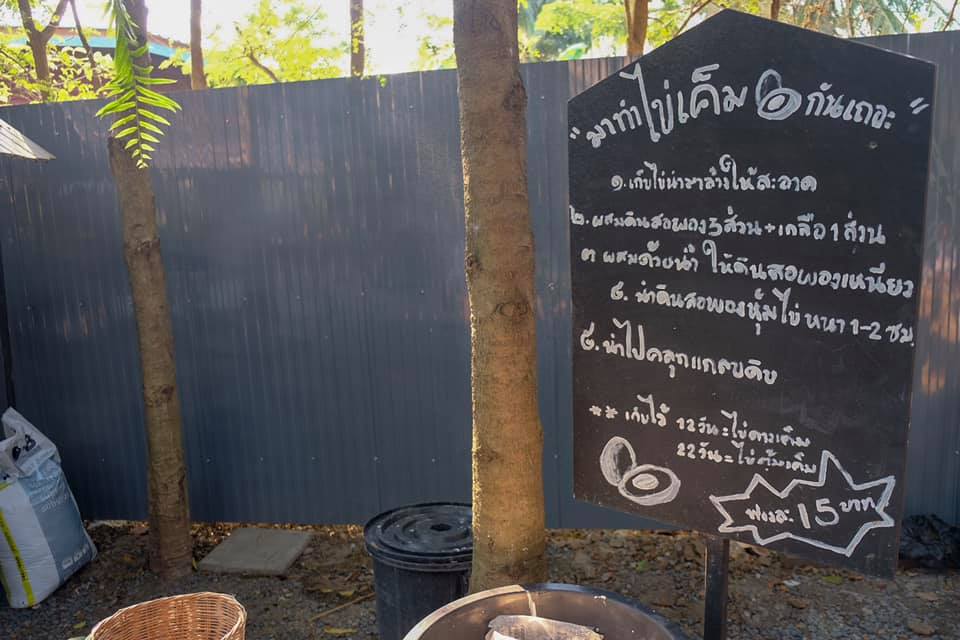 "มาทำไข่เค็ม กันเถอะ"
๑. เก็บไข่มาล้างให้สะอาด
๒. ผสมดินสอพอง 3 ส่วน + เกลือ 1 ส่วน
๓ ผสมด้วยน้ำ ให้ดินสอพองเหนียว
๔. นำดินสอพองหุ้มไข่ หนา 1-2 ซม.
๕. นำไปคลุกแกลบดิบ
** เก็บไว้ 12 วัน = ไข่ดาวเค็ม
22 วัน = ไข่ต้มเค็ม
ฟองละ 15 บาท